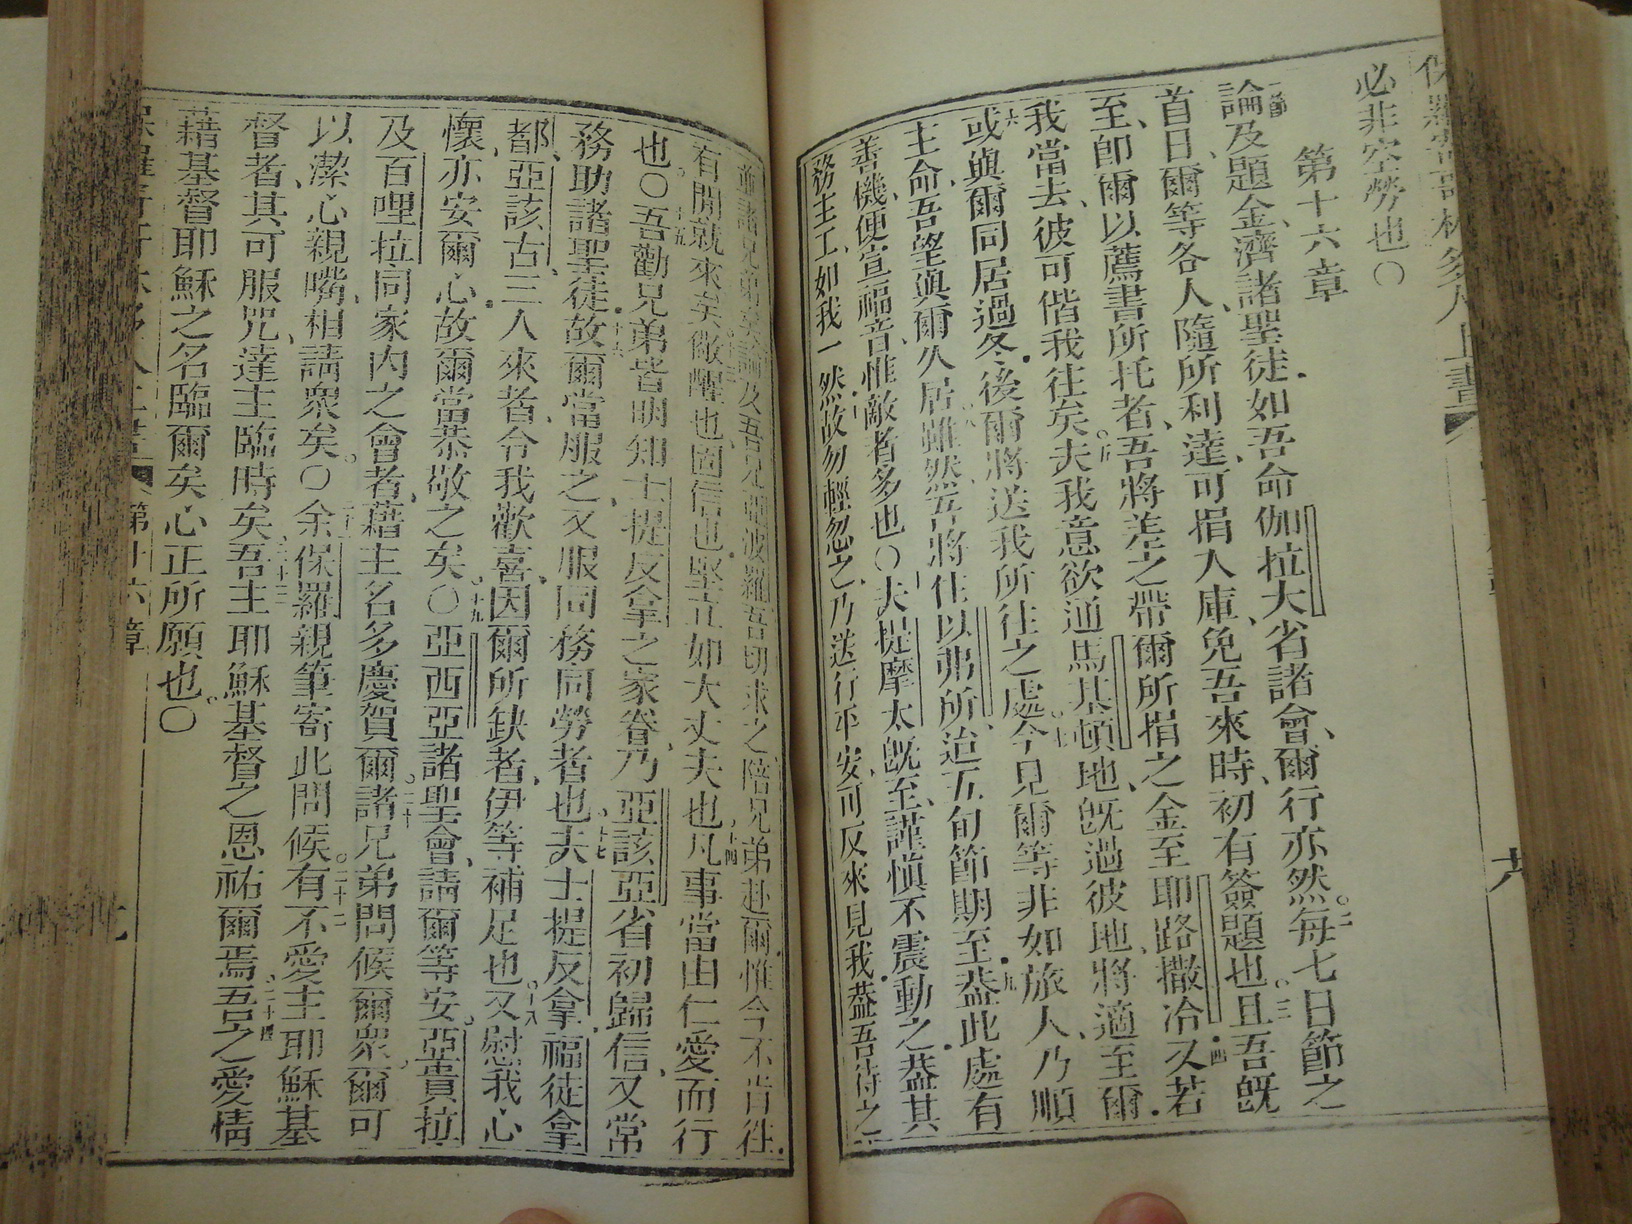 必非空勞也〇
第十六章
一節論及題金濟諸聖徒如吾命伽拉大省諸會爾行亦然二每七日節之
首日爾等各人隨所利達可捐入庫免吾來時初有簽題也三且吾旣
至卽爾以薦書所托者吾將差之帶爾所捐之金至耶路撒冷四又若
我當去彼可偕我往矣五夫我意欲通馬基頓地旣過彼地將適至爾
六或與爾同居過冬後爾將送我所往之處七今見爾等非如旅人乃順
主命吾望與爾久居八雖然吾將住以弗所迨五旬節期至九蓋此處有
善機便宣福音惟敵者多也〇十夫提摩太旣至謹愼不震動之蓋其
務主工如我一然故勿輕忽之乃送行平安可反來見我蓋吾待之
諸兄弟矣論及吾兄亞波羅吾切求之陪兄弟赴爾惟今不肯往
有閒就來矣儆醒也固信也堅立如大丈夫也十四凡事當由仁愛而行
也〇十五吾勸兄弟皆明知士提反拿之家眷乃亞該亞省初歸信又常
務助諸聖徒十六故爾當服之又服同務同勞者也十七夫士提反拿福徒拿
都亞該古三人來者令我歡喜因爾所缺者伊等補足也十八又慰我心
懷亦安爾心故爾當恭敬之矣〇十九亞西亞諸聖會請爾等安亞貴拉
及百哩拉同家內之會者藉主名多慶賀爾二十諸兄弟問候爾衆爾可
以潔心親嘴相請衆矣〇二十一余保羅親筆寄此問候二十二有不愛主耶穌基
督者其可服咒達主臨時矣二十三吾主耶穌基督之恩祐爾焉二十四吾之愛情
藉基督耶穌之名臨爾矣心正所願也〇
第十六章